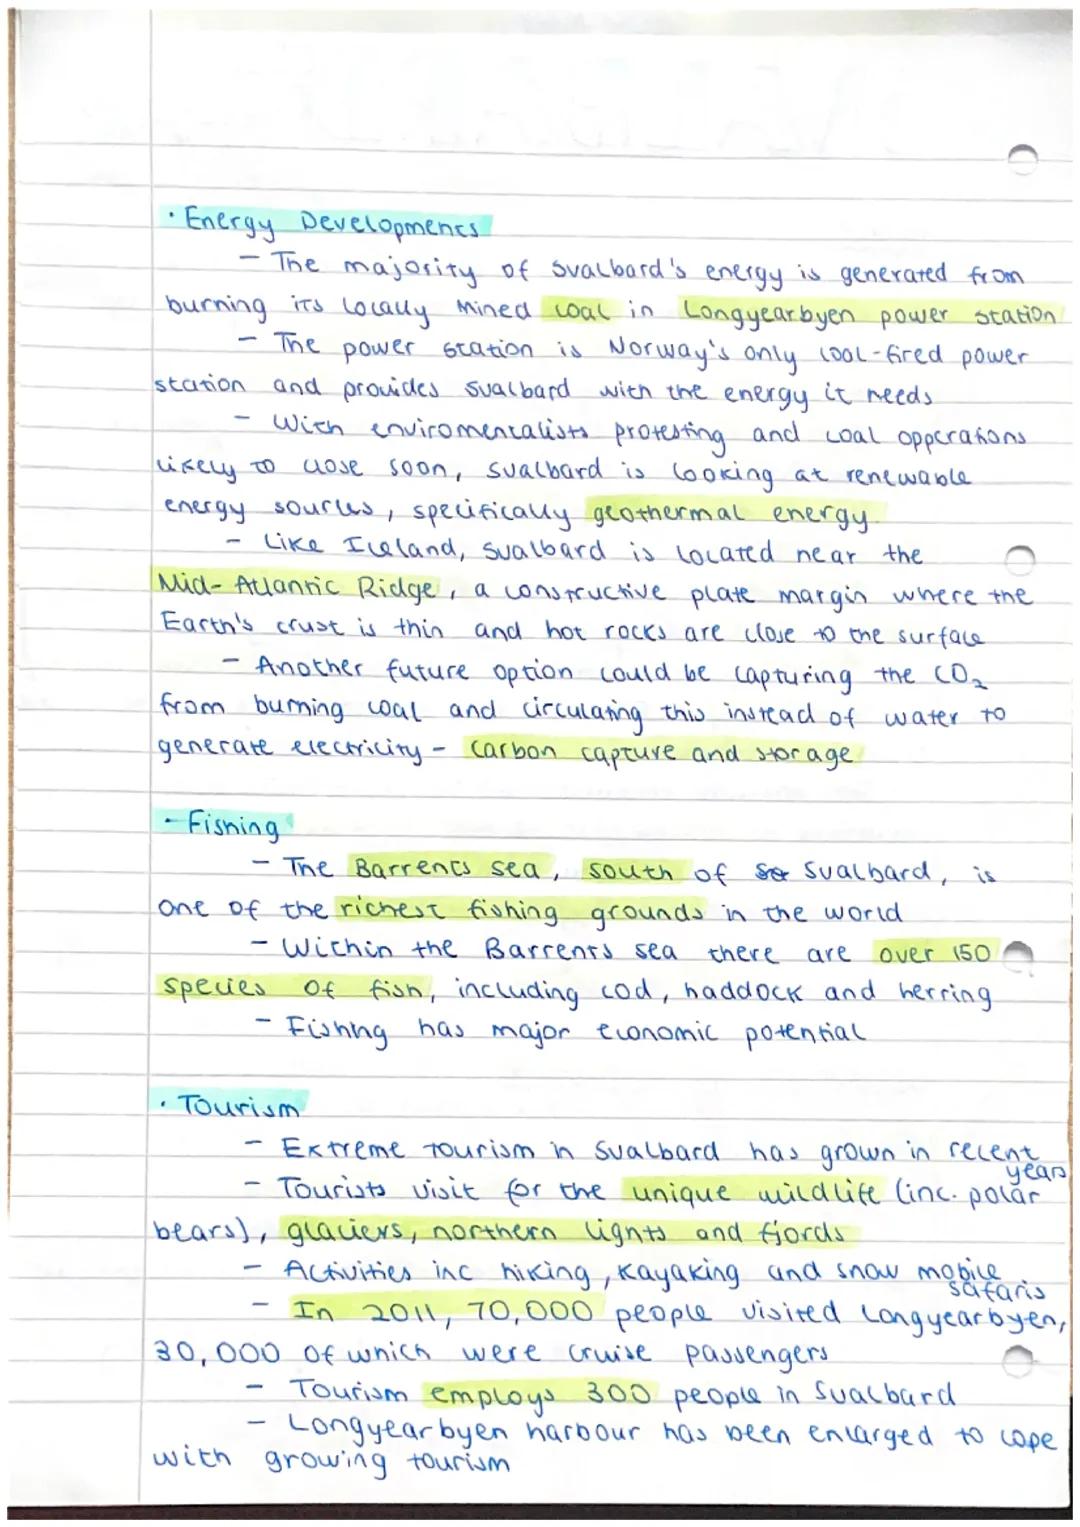 · Energy Developments
- The majority of Svalbard's energy is generated from
burning its locally mined coal in Longyearbyen power station
- The power station is Norway's only cool-fired power
station and provides svalbard with the energy it needs
- With enviromentalists protesting and coal opperations
likely to close soon, svalbard is looking at renewable
energy sources, specifically geothermal energy
- Like Iceland, svalbard is located near the
Mid-Atlantic Ridge, a constructive plate margin where the
Earth's crust is thin and hot rocks are close to the surface
- Another future option could be capturing the CO₂
from burning coal and circulating this instead of water to
generate electricity - carbon capture and storage
- Fishing
- The Barrents sea, south of Svalbard, is
one of the richest fishing grounds in the world
- Within the Barrents sea there are over 150
species of fish, including cod, haddock and herring
- Fishing has major economic potential
· Tourism
- Extreme tourism in Svalbard has grown in recent
years
- Tourists visit for the unique wildlife (inc. polar
bears), glaciers, northern lights and fjords
- Activities inc hiking, kayaking and snow mobile
safaris
- In 2011, 70,000 people visited Longyearbyen,
30,000 of which were cruise passengers
- Tourism employs 300 people in Svalbard
- Longyearbyen harbour has been enlarged to cope
with growing tourism